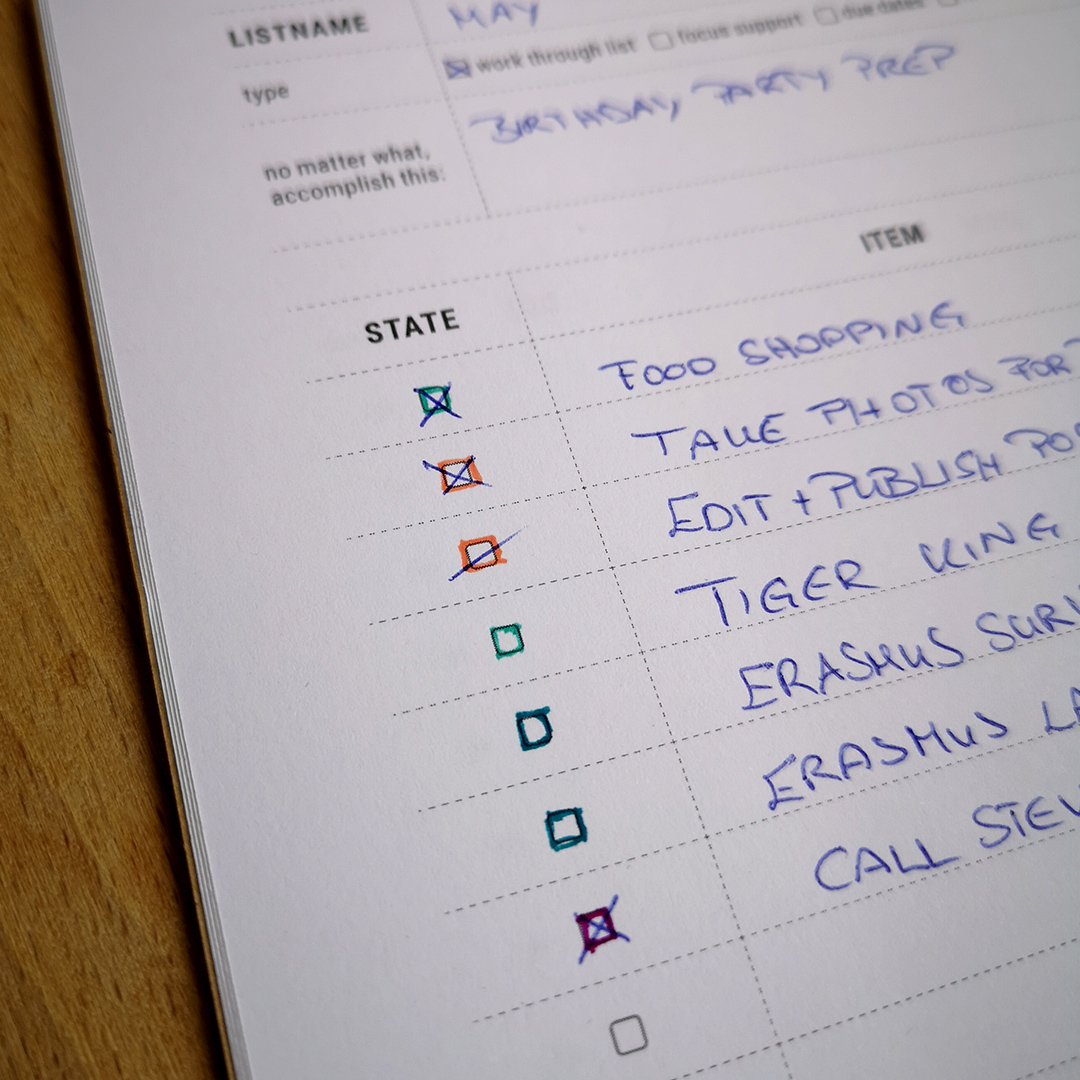 LISTNAME MAY
type work through list focus support due dates
no matter what, BIRTHDAY PARTY PREP
accomplish this:
STATE ITEM
FOOD SHOPPING
TAKE PHOTOS FOR
EDIT + PUBLISH
TIGER KING
ERASMUS
ERASMUS
CALL